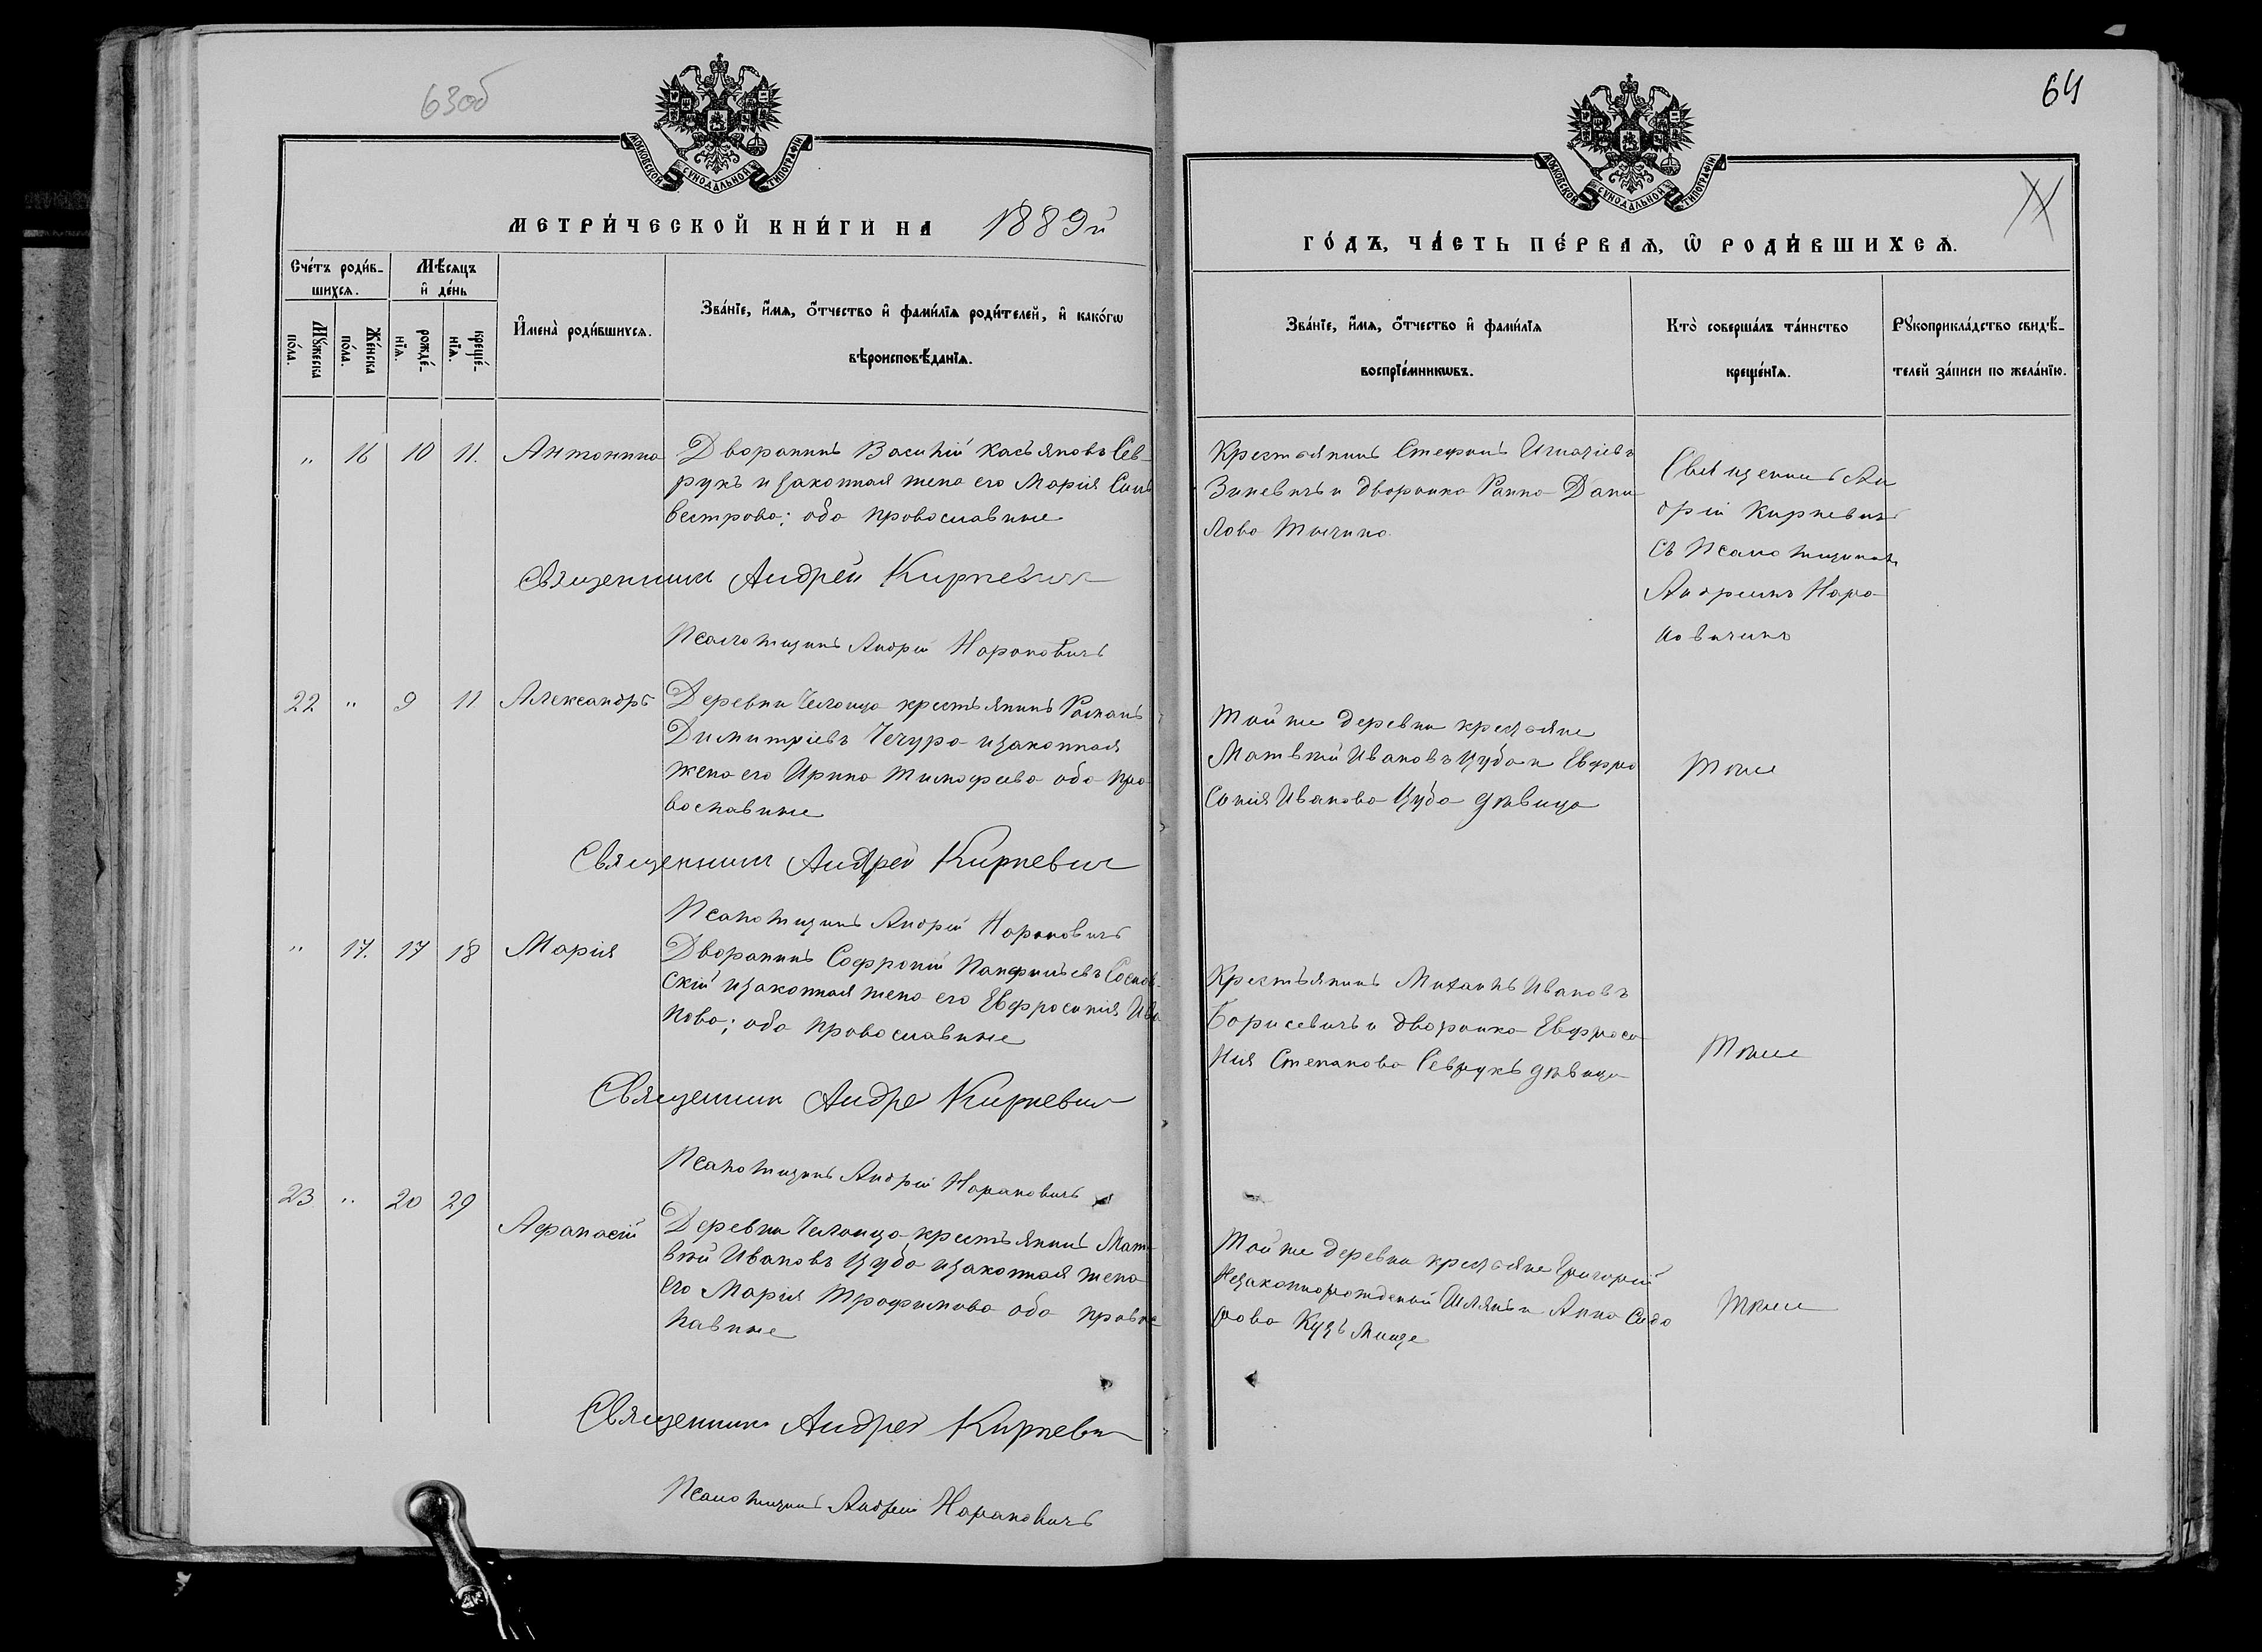 63об
МОСКОВСКОЙ СѴНОДАЛЬНОЙ ТИПОГРАФІИ
МЕТРИ́ЧЕСКОЙ КНИ́ГИ НА 1889й
Сче́тъ роди́в-
шихсѧ.
Мѣ́сѧцъ
и҆ де́нь
Мꙋ́жеска по́ла.
Же́нска по́ла.
рожде́-нїѧ.
креще́-нїѧ.
И҆мена̀ роди́вшихсѧ.
Зва́нїе, и҆́мѧ, ѻ҆́тчество и҆ фами́лїѧ роди́телей, и҆ како́гѡ
вѣроисповѣ́данїѧ.
„ 16 10 11. Антонина
Дворянинъ Василій Касъяновъ Сев-
рукъ и законная жена его Марія Силь
вестрова; оба православные
Священникъ Андрей Киркевич
Псаломщикъ Андрей Нароновичъ
22 „ 9 11 Александръ
Деревни крестьянинъ Романъ
Димитріевъ Чечура и законная
жена его Ирина Тимофеева оба пра
вославные
Священник Андрей Киркевич
Псаломщикъ Андрей Наронович
„ 17. 17 18 Марія
Дворянинъ Софроній Панфиліевъ Соснов-
скій и законная жена его Евфросинія Ива
нова; оба православные
Священник Андре Киркевич
Псаломщикъ Андрей Наронович
23 „ 20 29
Афанасій
Деревни крестьянинъ Мат-
вѣй Ивановъ Цуба и законная жена
его Марія Трофимова оба правос
лавные
Священник Андрей Киркевич
Псаломщикъ Андрей Наронович
64
МОСКОВСКОЙ СѴНОДАЛЬНОЙ ТИПОГРАФІИ
ГО́ДЪ, ЧА́СТЬ ПЕ́РВАѦ, Ѽ РОДИ́ВШИХСѦ.
Зва́нїе, и҆́мѧ, ѻ҆́тчество и҆ фами́лїѧ
воспрїе́мникѡвъ.
Кто̀ соверша́лъ та́инство
креще́нїѧ.
Рꙋкоприкла́дство свидѣ́-
телей за́писи по жела́нїю.
Крестьянинъ Стефанъ Игнатіевъ
Зиневичъ и дворянка Дани
лова
Священникъ Ан
дрей Киркевичъ
съ Псаломщикомъ
Андреемъ Наро
новичемъ
Той же деревни крестьяне
Матвѣй Ивановъ Цуба и Евфро
синія Иванова Цуба дѣвица
Тоже
Крестьянинъ Михаилъ Ивановъ
Борисевичъ и дворянка Евфроси
нія Степанова Севрукъ дѣвица
Тоже
Той же деревни крестьяне Григорій
Незаконнорожденный и Анна Сидо
рова
Тоже